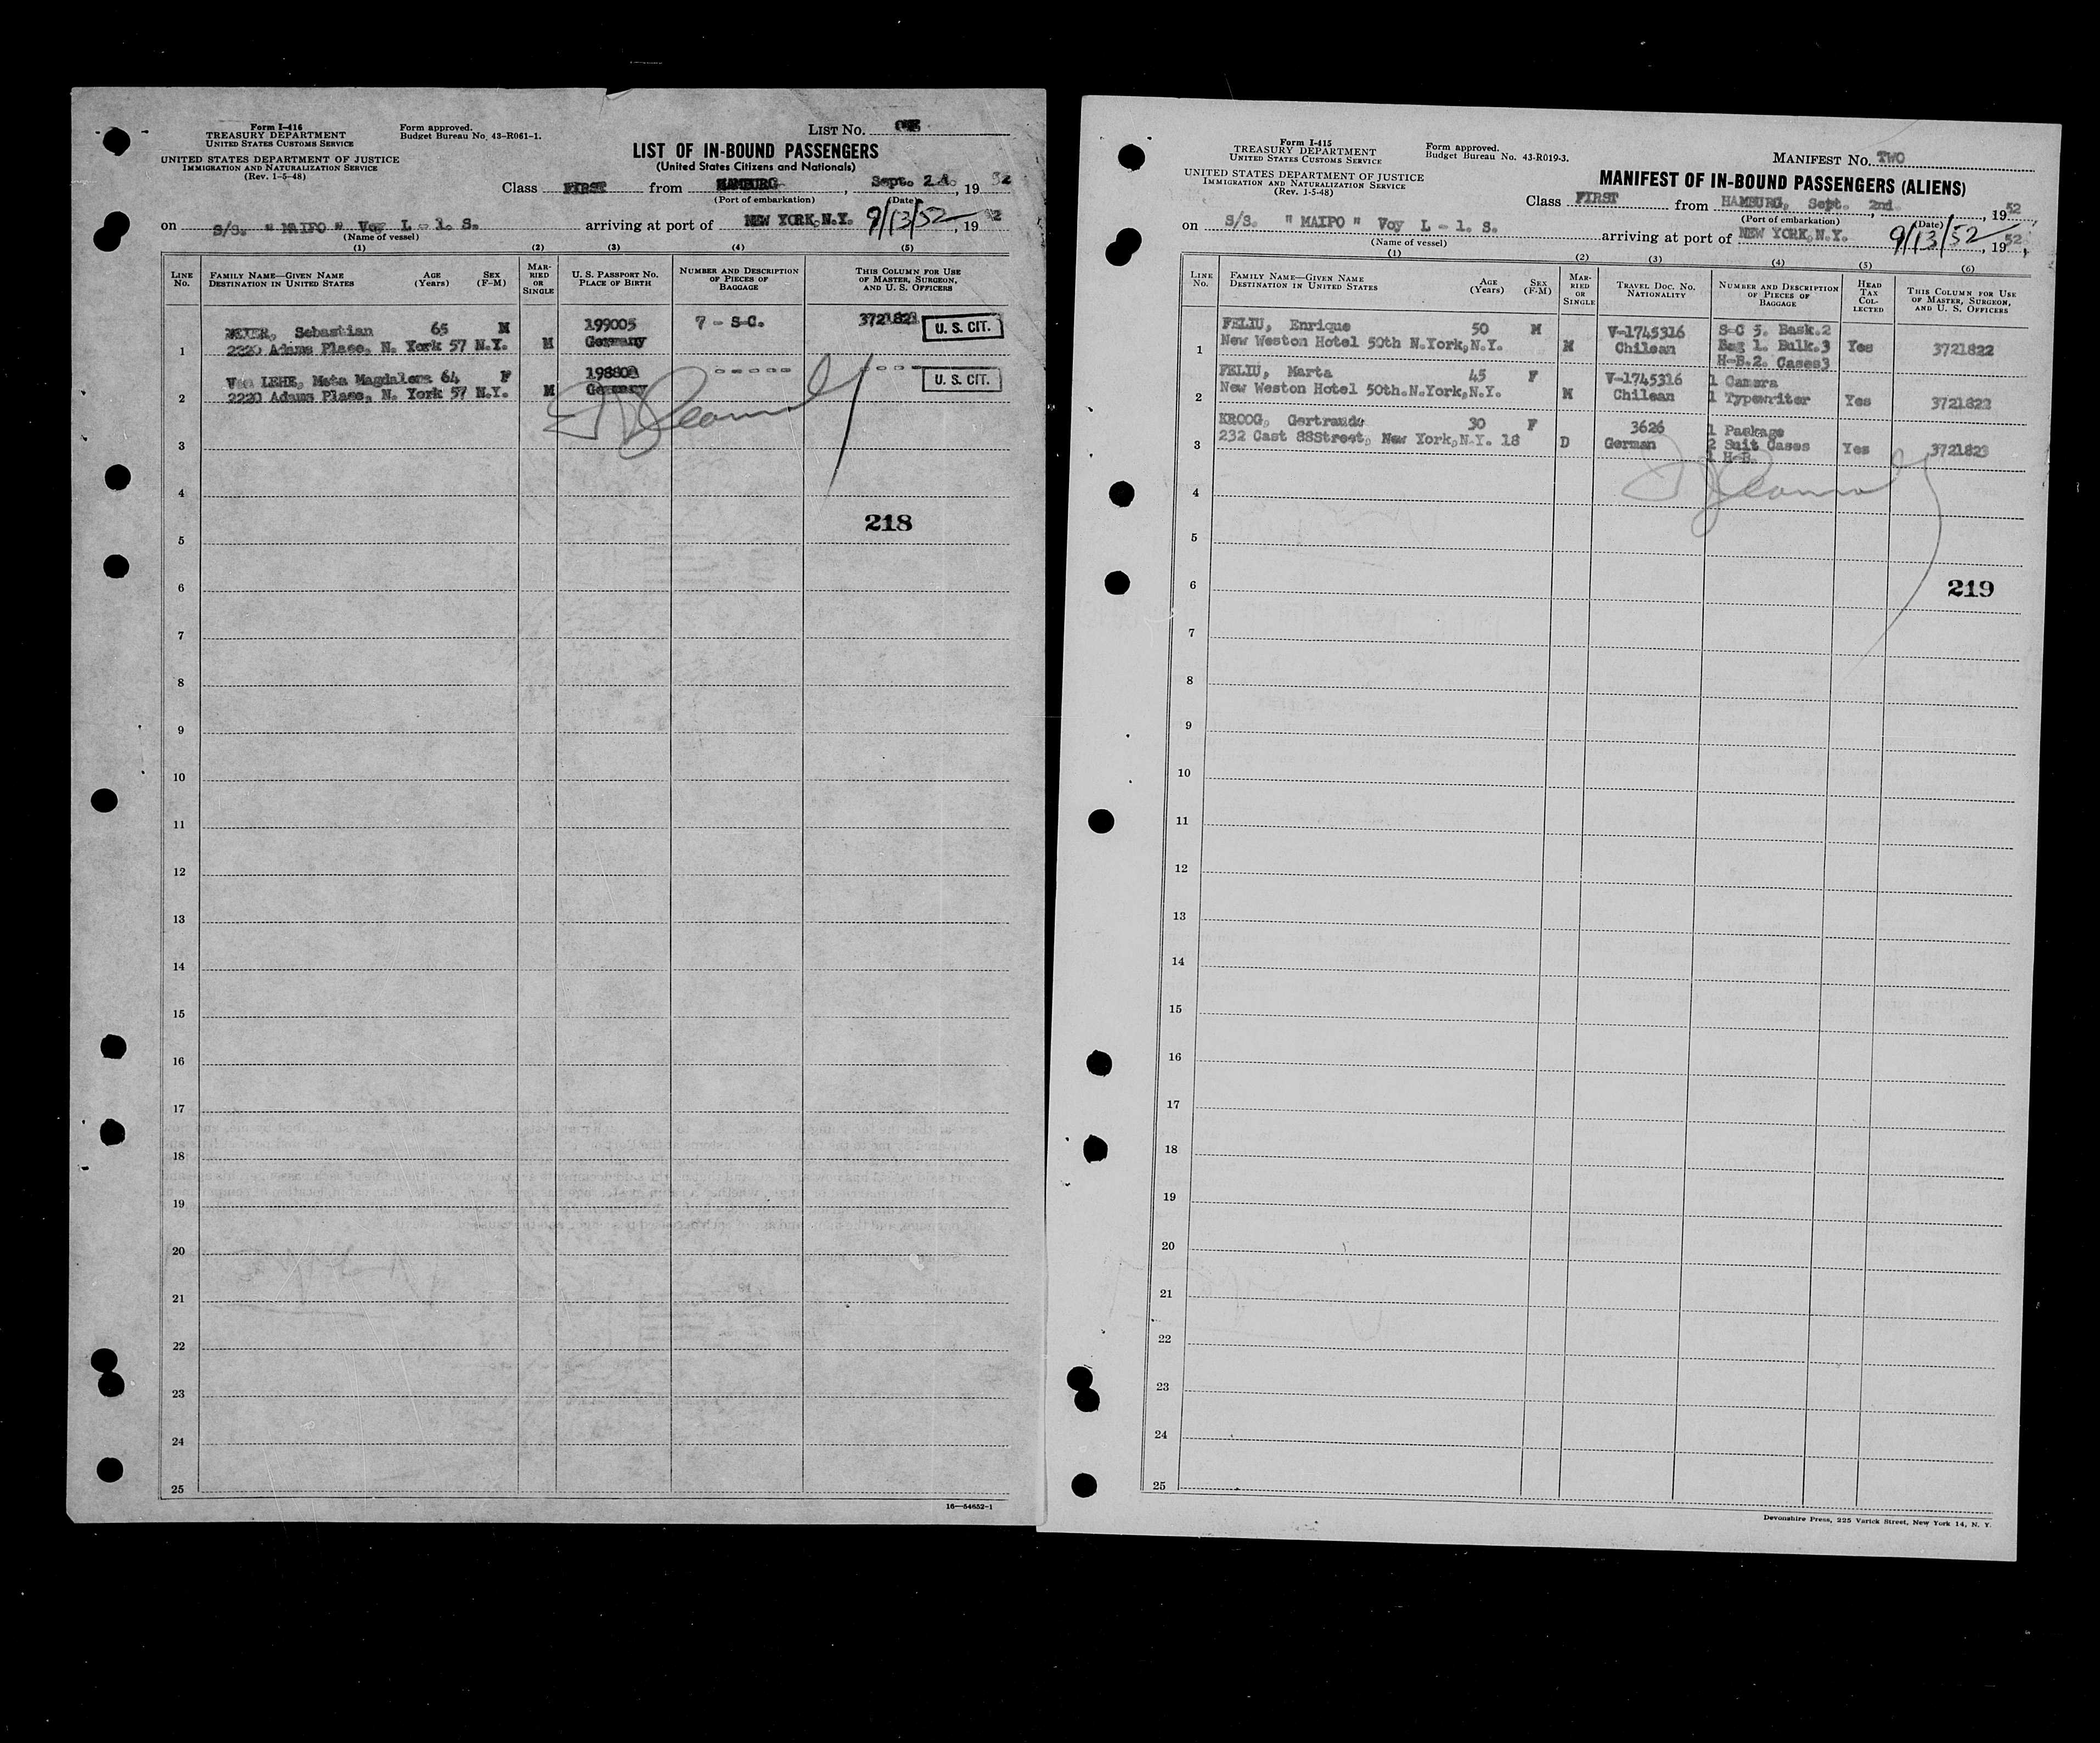 Form I-416
TREASURY DEPARTMENT
UNITED STATES CUSTOMS SERVICE
UNITED STATES DEPARTMENT OF JUSTICE
IMMIGRATION AND NATURALIZATION SERVICE
(Rev. 1-5-48)
Form approved.
Budget Bureau No. 43-R061-1.
LIST No. ONE
LIST OF IN-BOUND PASSENGERS
(United States Citizens and Nationals)
Class FIRST from HAMBURG, Sept. 2, 19 52
(Port of embarkation) (Date)
on S/S. " MAIPO " Voy L - 1. S. arriving at port of NEW YORK,N.Y. 9/13/52, 19 52
(Name of vessel)
(1) (2) (3) (4) (5)
LINE No.
FAMILY NAME—GIVEN NAME
DESTINATION IN UNITED STATES
AGE (Years)
SEX (F-M)
MARRIED OR SINGLE
U. S. PASSPORT NO.
PLACE OF BIRTH
NUMBER AND DESCRIPTION OF PIECES OF BAGGAGE
THIS COLUMN FOR USE OF MASTER, SURGEON, AND U. S. OFFICERS
1 MEYER, Sebastian 65 M 199005 7 - S-C. 3721821 U. S. CIT.
2220 Adams Place, N. York 57 N.Y. M Germany
2 Von LEHE, Meta Magdalena 64 F - - - - - - - - - U. S. CIT.
2220 Adams Place, N. York 57 N.Y. M Germany
3
4
218
5
6
7
8
9
10
11
12
13
14
15
16
17
18
19
20
21
22
23
24
25
16—54652-1
Form I-415
TREASURY DEPARTMENT
UNITED STATES CUSTOMS SERVICE
UNITED STATES DEPARTMENT OF JUSTICE
IMMIGRATION AND NATURALIZATION SERVICE
(Rev. 1-5-48)
Form approved.
Budget Bureau No. 43-R019-3.
MANIFEST No. TWO
MANIFEST OF IN-BOUND PASSENGERS (ALIENS)
Class FIRST from HAMBURG, Sept. 2nd., 19 52
(Port of embarkation) (Date)
on S/S. " MAIPO " Voy L - 1. S. arriving at port of NEW YORK,N.Y. 9/13/52, 19 52,
(Name of vessel)
(1) (2) (3) (4) (5) (6)
LINE No.
FAMILY NAME—GIVEN NAME
DESTINATION IN UNITED STATES
AGE (Years)
SEX (F-M)
MARRIED OR SINGLE
TRAVEL DOC. NO.
NATIONALITY
NUMBER AND DESCRIPTION OF PIECES OF BAGGAGE
HEAD TAX COLLECTED
THIS COLUMN FOR USE OF MASTER, SURGEON, AND U. S. OFFICERS
1 FELIU, Enrique 50 M V-1745316 S-C 5. Bask.2
New Weston Hotel 50th N.York,N.Y. M Chilean Bag 1. Bulk.3 Yes 3721822
H-B.2. Cases3
2 FELIU, Marta 45 F V-1745316 1 Camera
New Weston Hotel 50th.N.York,N.Y. M Chilean 1 Typewriter Yes 3721822
3 KROOG, Gertraude 30 F 3626 1 Package
232 Cast 88Street, New York,N.Y. 18 D German 2 Suit Cases Yes 3721823
1 H-B.
4
5
6 219
7
8
9
10
11
12
13
14
15
16
17
18
19
20
21
22
23
24
25
Devonshire Press, 225 Varick Street, New York 14, N. Y.